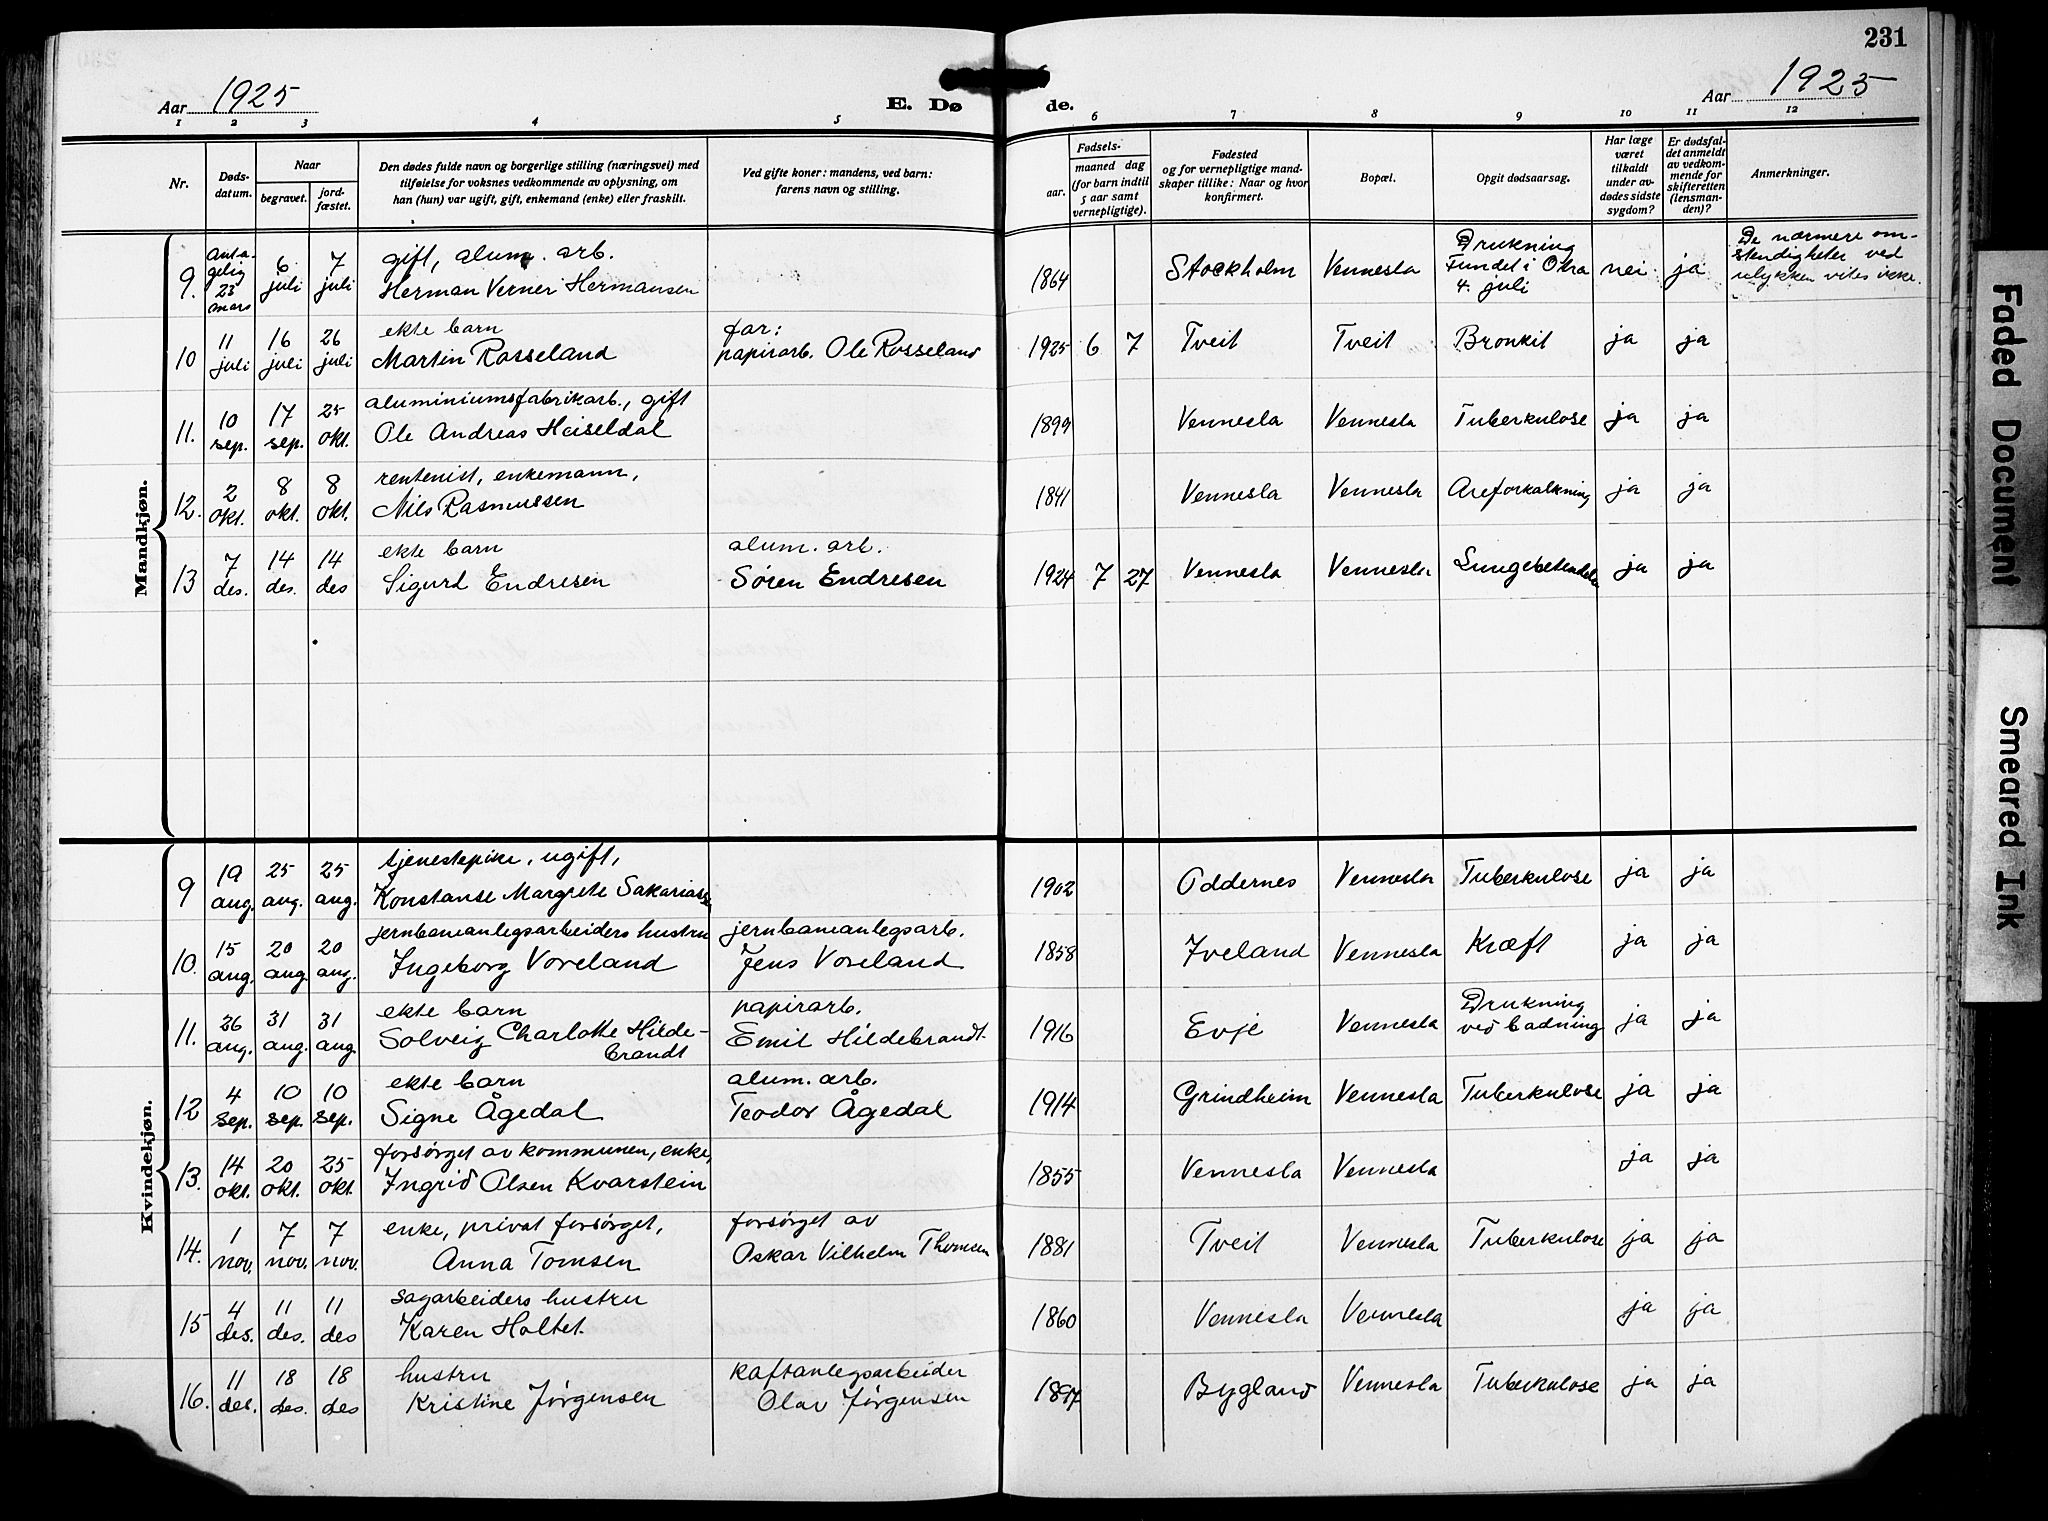 231
Aar 1925
E. Dø
de.
Aar 1925
1 2 3 4 5 6 7 8 9 10 11 12
Nr.
Døds-
datum.
Naar
begravet.
jord-
fæstet.
Den dødes fulde navn og borgerlige stilling (næringsvei) med
tilføielse for voksnes vedkommende av oplysning, om
han (hun) var ugift, gift, enkemand (enke) eller fraskilt.
Ved gifte koner: mandens, ved barn:
farens navn og stilling.
Fødsels-
aar.
maaned dag
(for barn indtil
5 aar samt
vernepligtige).
Fødested
og for vernepligtige mand-
skaper tillike: Naar og hvor
konfirmert.
Bopæl.
Opgit dødsaarsag.
Har læge
været
tilkaldt
under av-
dødes sidste
sygdom?
Er dødsfal-
det anmeldt
av vedkom-
mende for
skifteretten
(lensman-
den)?
Anmerkninger.
Mandkjøn.
9. Anta-
gelig
23
mars
6
juli
7
juli
gift, alum. arb.
Herman Verner Hermansen
1864
Stockholm
Vennesla
Drukning
Fundet i Otra
4. juli
nei
ja
De nærmere om-
stendigheter ved
ulykken vites ikke.
10
11
juli
16
juli
26
juli
ekte barn
Martin Rosseland
far:
papirarb. Ole Rosseland
1925 6 7
Tveit
Tveit
Bronkit
ja
ja
11.
10
sep.
17
sep.
25
okt.
aluminiumsfabrikarb., gift
Ole Andreas Heiseldal
1899
Vennesla
Vennesla
Tuberkulose
ja
ja
12.
2
okt.
8
okt.
8
okt.
rentenist, enkemann,
Nils Rasmussen
1841
Vennesla
Vennesla
Areforkalkning
ja
ja
13
7
des.
14
des.
14
des
ekte barn
Sigurd Endresen
alum. arb.
Søren Endresen
1924 7 27
Vennesla
Vennesla
ja
ja
Kvindekjøn.
9
19
aug.
25
aug.
25
aug.
tjenestepike, ugift,
Konstanse Margrete Sakariassen
1902
Oddernes
Vennesla
Tuberkulose
ja
ja
10.
15
aug.
20
aug
20
aug.
jernbaneanlegsarbeiders hustru
Ingeborg Voreland
jernbaneanlegsarb.
Jens Voreland
1858
Iveland
Vennesla
Kræft
ja
ja
11.
26
aug.
31
aug.
31
aug.
ekte barn
Solveig Charlotte Hilde-
brandt
papirarb.
Emil Hildebrandt.
1916
Evje
Vennesla
Drukning
ved badning
ja
ja
12
4
sep.
10
sep.
10
sep.
ekte barn
Signe Ågedal
alum. arb.
Teodor Ågedal
1914
Grindheim
Vennesla
Tuberkulose
ja
ja
13.
14
okt.
20
okt.
25
okt.
forsørget av kommunen, enke,
Ingrid Olsen Kvarstein
1855
Vennesla
Vennesla
ja
ja
14.
1
nov.
7
nov.
7
nov.
enke, privat forsørget,
Anna Tomsen
forsørget av
Oskar Vilhelm Thomsen
1881
Tveit
Vennesla
Tuberkulose
ja
ja
15
4
des.
11
des.
11
des
sagarbeiders hustru
Karen Holtet.
1860
Vennesla
Vennesla
ja
ja
16.
11
des.
18
des.
18
des
hustru
Kristine Jørgensen
kaftanlegsarbeider
Olav Jørgensen
1897
Bygland
Vennesla
Tuberkulose
ja
ja
Faded Document
Smeared Ink